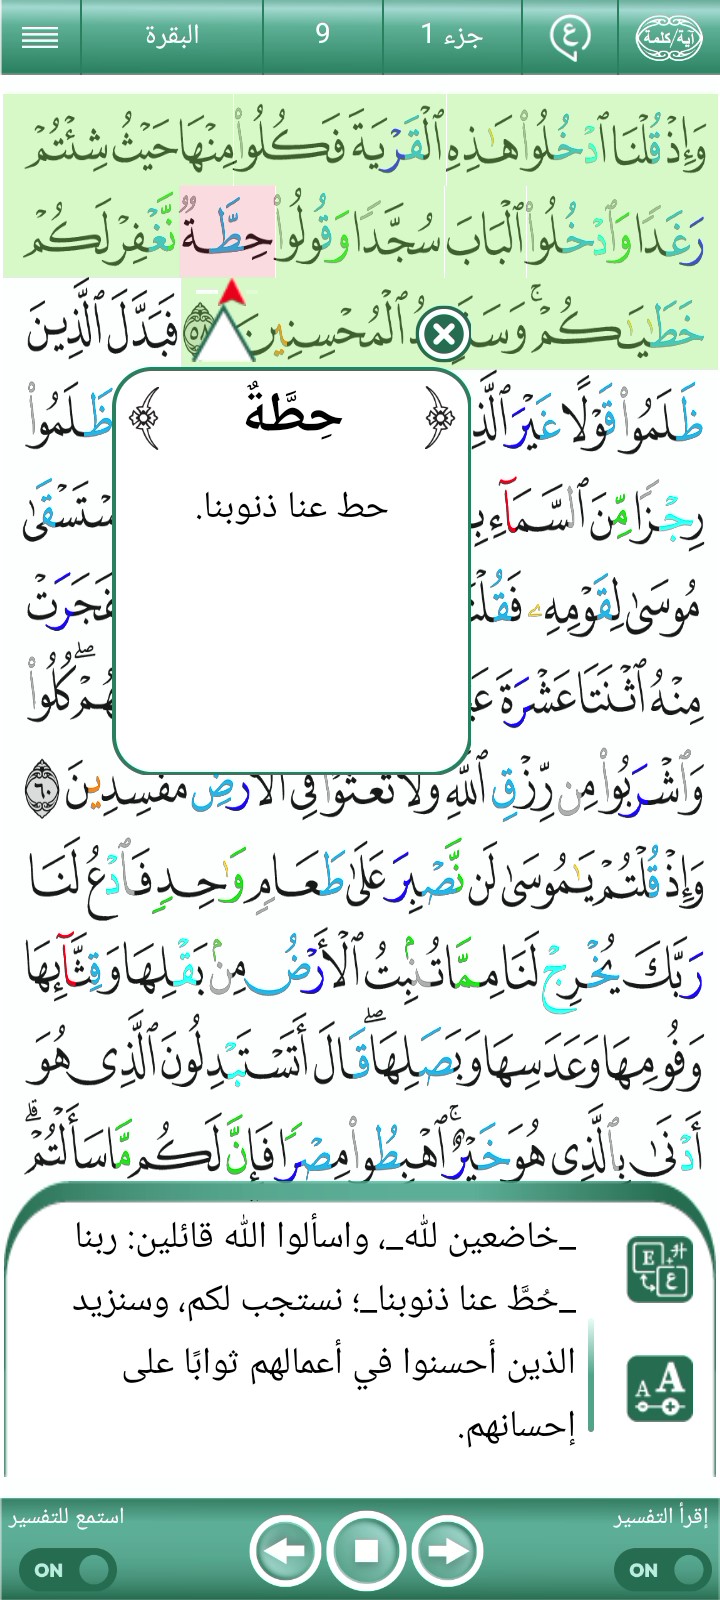 آية/كلمة جزء 1 9 البقرة
وَإِذْ قُلْنَا ٱدْخُلُوا۟ هَـٰذِهِ ٱلْقَرْيَةَ فَكُلُوا۟ مِنْهَا حَيْثُ شِئْتُمْ
رَغَدًا وَٱدْخُلُوا۟ ٱلْبَابَ سُجَّدًا وَقُولُوا۟ حِطَّةٌ نَّغْفِرْ لَكُمْ
خَطَـٰيَـٰكُمْ ۚ ٱلْمُحْسِنِينَ ٥٨ فَبَدَّلَ ٱلَّذِينَ
ظَلَمُوا۟ قَوْلًا غَيْرَ ظَلَمُوا۟
رِجْزًا مِّنَ ٱلسَّمَآءِ
مُوسَىٰ لِقَوْمِهِۦ
مِنْهُ ٱثْنَتَا عَشْرَةَ كُلُوا۟
وَٱشْرَبُوا۟ مِن رِّزْقِ ٱللَّهِ وَلَا تَعْثَوْا۟ فِى ٱلْأَرْضِ مُفْسِدِينَ ٦٠
وَإِذْ قُلْتُمْ يَـٰمُوسَىٰ لَن نَّصْبِرَ عَلَىٰ طَعَامٍ وَٰحِدٍ فَٱدْعُ لَنَا
رَبَّكَ يُخْرِجْ لَنَا مِمَّا تُنۢبِتُ ٱلْأَرْضُ مِنۢ بَقْلِهَا وَقِثَّآئِهَا
وَفُومِهَا وَعَدَسِهَا وَبَصَلِهَا ۖ قَالَ أَتَسْتَبْدِلُونَ ٱلَّذِى هُوَ
أَدْنَىٰ بِٱلَّذِى هُوَ خَيْرٌ ۚ ٱهْبِطُوا۟ مِصْرًا فَإِنَّ لَكُم مَّا سَأَلْتُمْ ۗ
حِطَّةٌ
حط عنا ذنوبنا.
_خاضعين لله_، واسألوا الله قائلين: ربنا
_حُطَّ عنا ذنوبنا_؛ نستجب لكم، وسنزيد
الذين أحسنوا في أعمالهم ثوابًا على
إحسانهم.
إقرأ التفسير استمع للتفسير
ON ON